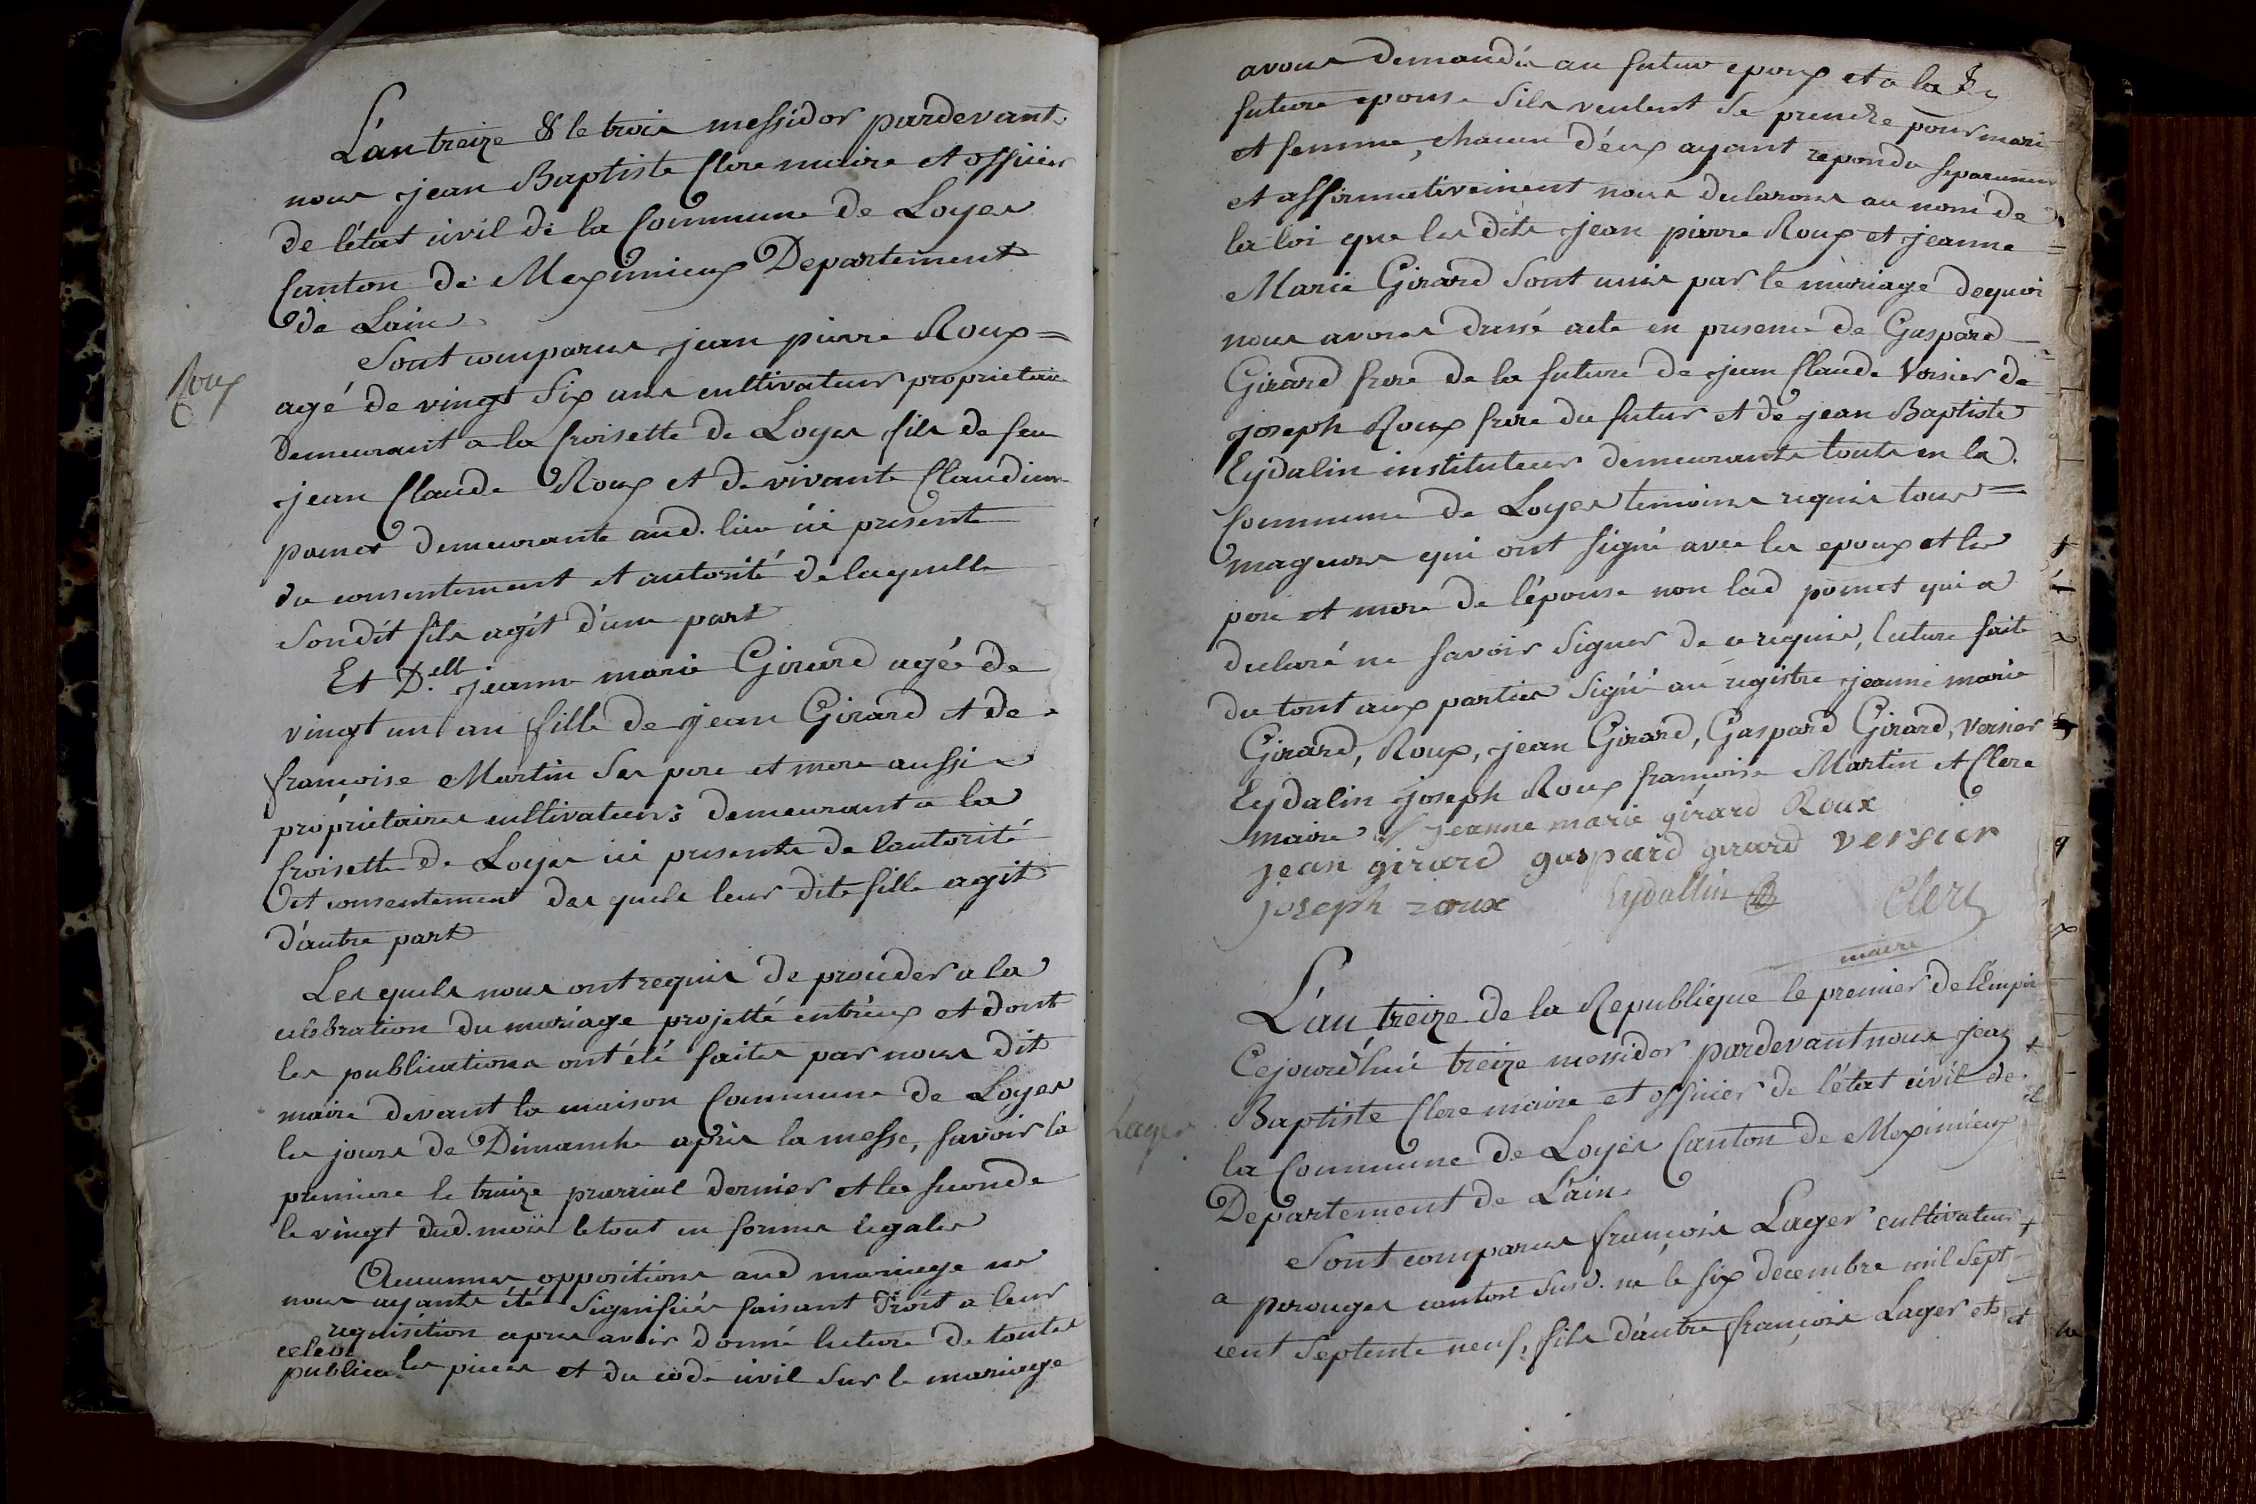 L'an treize & le trois messidor pardevant
nous jean Baptiste Clerc maire et officier
de l'état civil de la Commune de Loyes
Canton de Meximieux Departement
de Lain
Roux
Sont comparus jean pierre Roux =
agé de vingt Six ans cultivateur proprietaire
demeurant a la Croisette de Loyes fils de feu
jean Claude Roux et de vivante Claudine
pomet demeurante aud. lieu ici presente
du consentement et autorité de laquelle
Sondit fils agit d'une part
Et D.elle jeanne marie Girard agée de
vingt un an fille de jean Girard et de
francoise Martin Ses pere et mere aussi
propriétaires cultivateurs demeurant a la
Croisette de Loyes ici presents de lautorité
et consentement des quels leur dite fille agit
d'autre part
Les quels nous ont requis de proceder a la
celebration du mariage projetté entr'eux et dont
les publications ont été faites par nous dit
maire devant la maison Commune de Loyes
les jours de Dimanche après la messe, savoir la
premiere le treize prairial dernier et la seconde
le vingt dud. mois le tout en forme legales
Aucunnes oppositions aud mariage ne
nous ayants été Signifiées faisant droit a leur
requisition apres avoir donné lecture de toutes
celeb
publica. les pieces et du code civil sur le mariage
avons demandés au futur epoux et a la
future epouse Sils veulent Se prendre pour mari
et femme, chacun d'eux ayant repondu separement
et affirmativement nous declarons au nom de
la loi que les dits jean pierre Roux et jeanne =
Marie Girard Sont unis par le mariage dequoi
nous avons dressé acte en presence de Gaspard
Girard frere de la future de jean Claude Versier de
joseph Roux frere du futur et de jean Baptiste
Eydalin instituteur demeurants touts en la
Commune de Loyes temoins requis tous =
mageurs qui ont signé avec les epoux et les
pere et mere de l'épouse non lad pomet qui a
declaré ne savoir Signer de ce requise, lecture faite
du tout aux parties Signé au registre jeanne marie
Girard, Roux, jean Girard, Gaspard Girard, Versier
Eydalin joseph Roux francoise Martin et Clerc
maire jeanne marie girard Roux
jean girard gaspard girard versier
joseph roux Eydallin Clerc
maire
L'an treize de la Republique le premier de l'Empire
Cejourd'hui treize messidor pardevant nous jean
Lager
Baptiste Clerc maire et officier de l'état civil de
la Commune de Loyes Canton de Meximieux
Departement de L'ain
Sont comparus françois Lager cultivateur
a perouges canton susd. ne le six decembre mil Sept
cent Septente neuf, fils d'autre françois Lager et